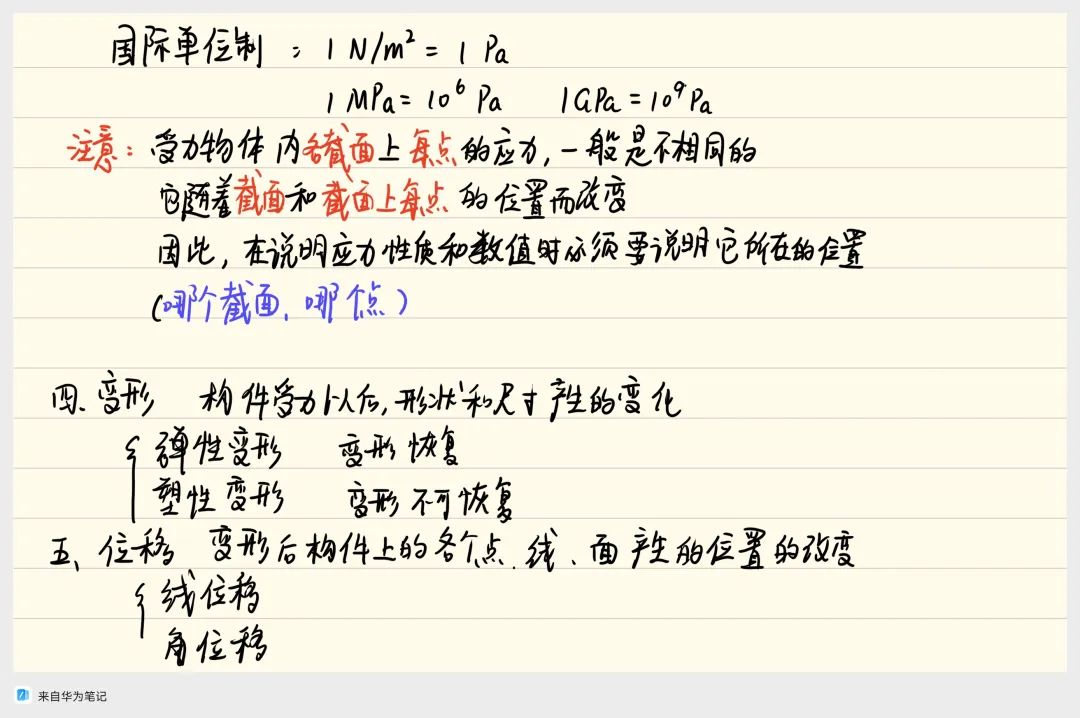 国际单位制：1 N/m² = 1 Pa
1 MPa = 10⁶ Pa 1GPa = 10⁹ Pa
注意：受力物体内各截面上每点的应力，一般是不相同的
它随着截面和截面上每点的位置而改变
因此，在说明应力性质和数值时必须要说明它所在的位置
（哪个截面，哪个点）
四、变形 构件受力以后，形状和尺寸产生的变化
弹性变形 变形恢复
塑性变形 变形不可恢复
五、位移 变形后构件上的各个点、线、面产生的位置的改变
线位移
角位移
来自华为笔记